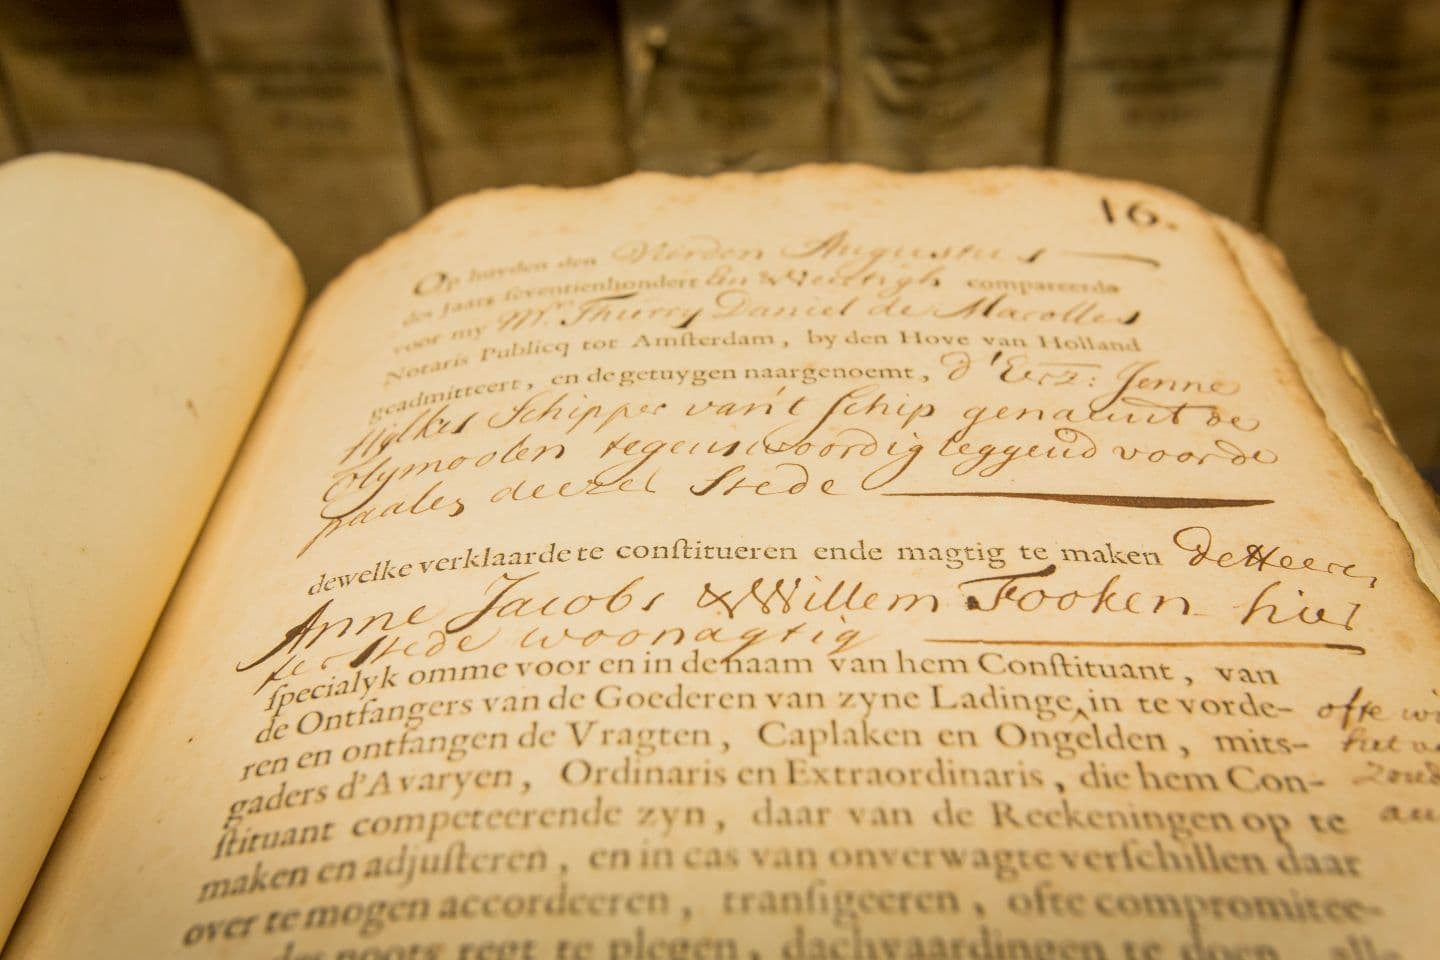 16.
Op huyden den Vierden Augustus
des Jaars seventienhondert en Tweentigh compareerde
voor my Mr. Thierry Daniel de Marolles
Notaris Publicq tot Amsterdam, by den Hove van Holland
geadmitteert, en de getuygen naargenoemt, d'Eerz: Jenne
Hylkes Schipper van't schip genaamt de
tegenwoordig leggend voor de
paalen deezer Stede
dewelke verklaarde te constitueren ende magtig te maken De Heeren
Anne Jacobs & Willem Fooken hier
ter stede woonagtig
specialyk omme voor en in de naam van hem Constituant, van
de Ontfangers van de Goederen van zyne Ladinge in te vorde-
ren en ontfangen de Vragten, Caplaken en Ongelden, mits-
gaders d'Avaryen, Ordinaris en Extraordinaris, die hem Con-
stituant competeerende zyn, daar van de Reekeningen op te
maken en adjusteren, en in cas van onverwagte verschillen daar
over te mogen accordeeren, transigeeren, ofte compromitee-
des noots regt te plegen, dachvaardingen te doen, alle
ofte
het